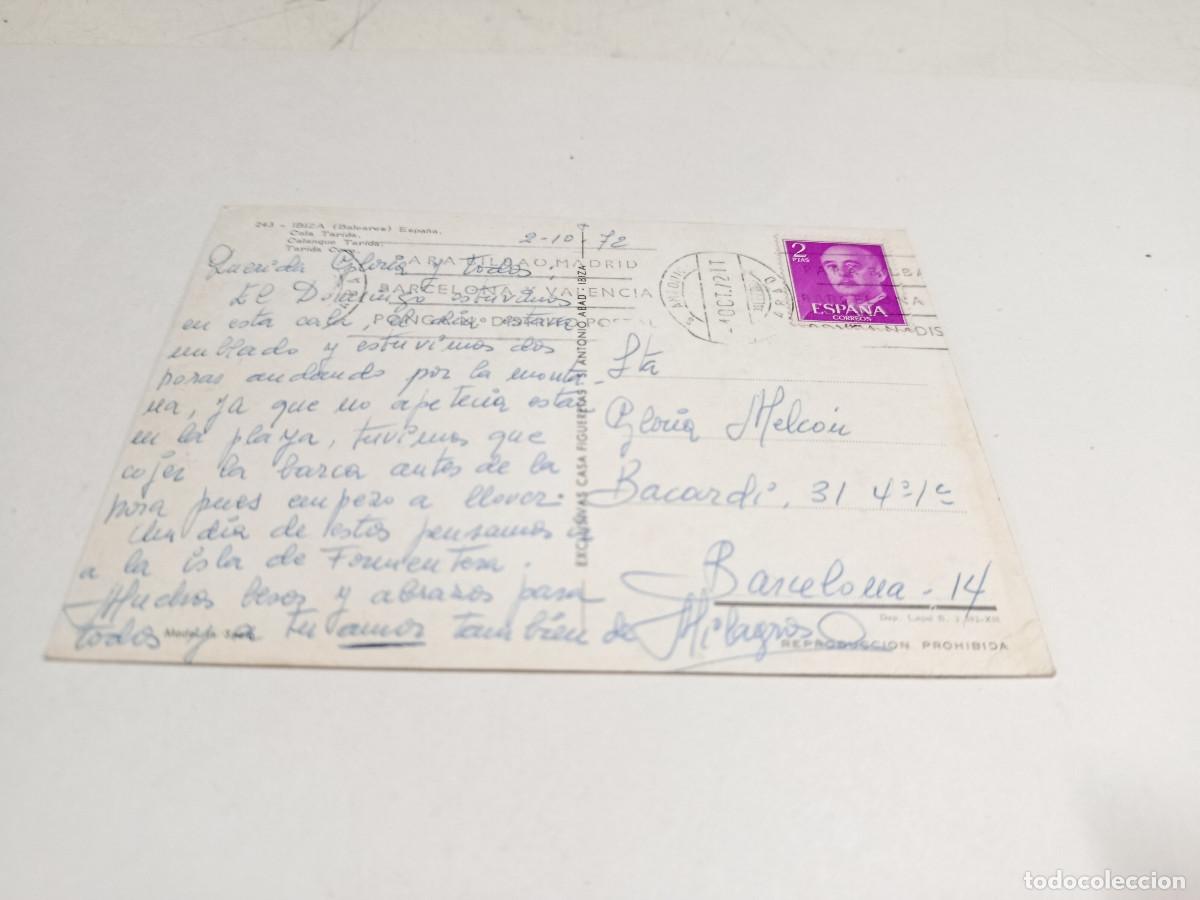 243 - IBIZA (Baleares) España.
Cala Tarida.
Calanque Tarida.
Tarida Cove.
2-10-72
PARA BILBAO, MADRID
BARCELONA Y VALENCIA
PONGA Nº DISTRITO POSTAL
ANTONIO
-4 OCT. 72 1T
ABAD
2
PTAS
ESPAÑA
CORREOS
Querida Gloria y todos:
El Domingo estuvimos
en esta cala, el día estaba
nublado y estuvimos dos
horas andando por la monta
ña, ya que no apetecia estar
en la playa, tuvimos que
cojer la barca antes de la
hora pues empezo a llover.
Un día de estos pensamos ir
a la isla de Formentera.
Muchos besos y abrazos para
todos y a tu amor también de Milagros
EXCLUSIVAS CASA FIGUERETAS - S. ANTONIO ABAD - IBIZA
Sta
Gloria Melcón
Bacardi, 31 4º 1ª
Barcelona - 14
REPRODUCCION PROHIBIDA
todocoleccion